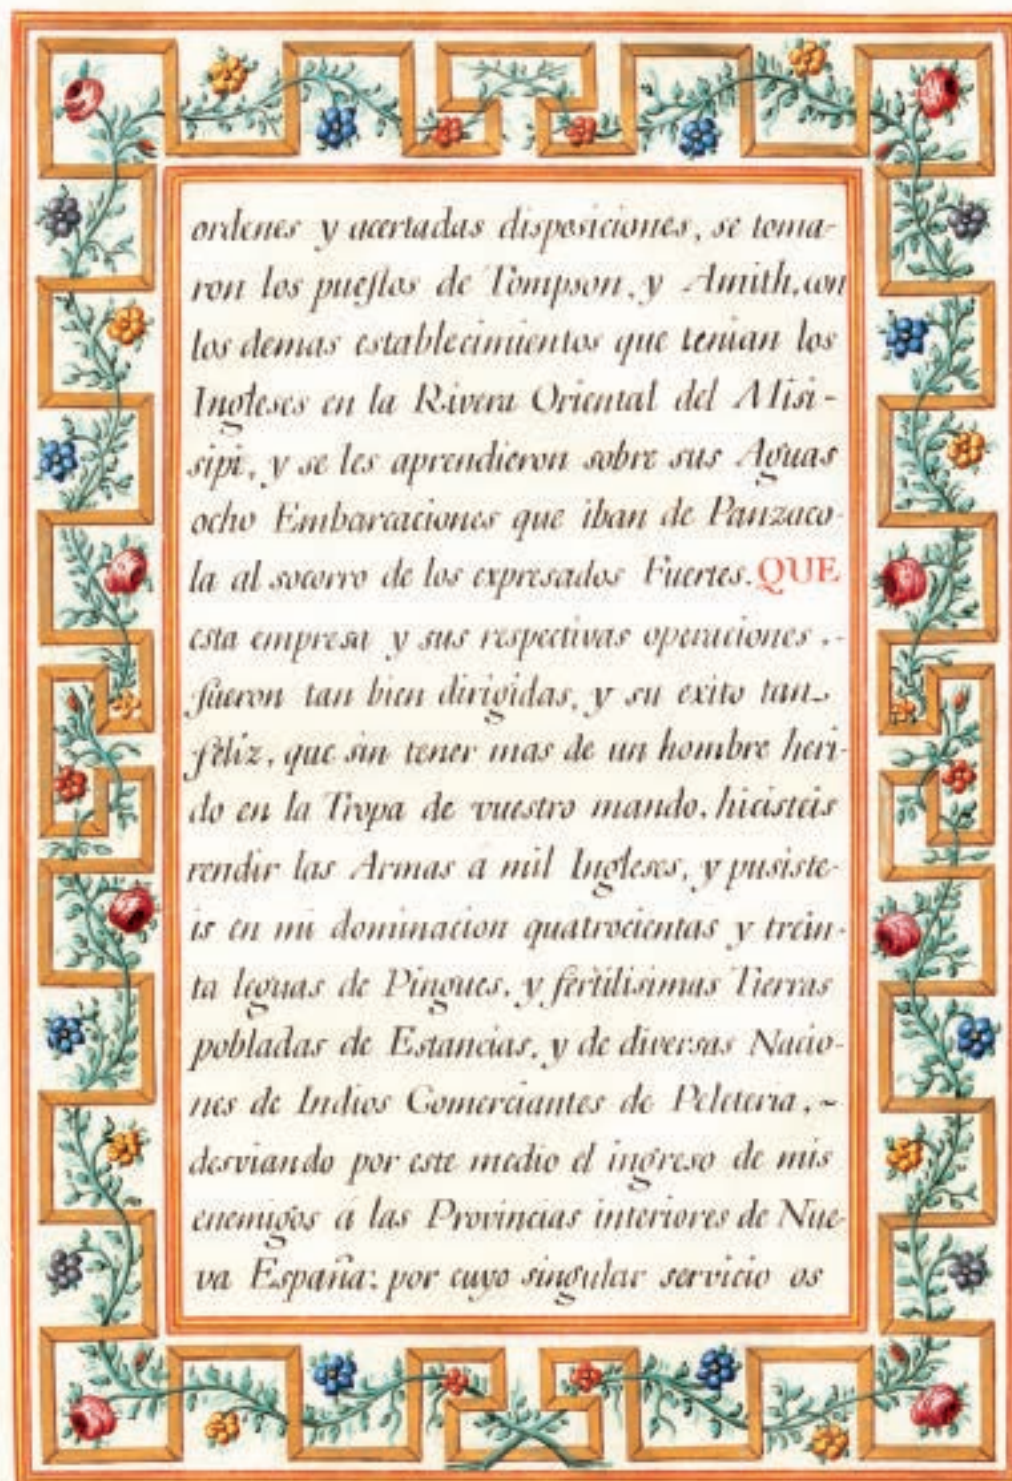 ordenes y acertadas disposiciones, se toma-
ron los puestos de Tompson, y Amith, con
los demas establecimientos que tenian los
Ingleses en la Rivera Oriental del Misi-
sipi, y se les aprendieron sobre sus Aguas
ocho Embarcaciones que iban de Panzaco-
la al socorro de los expresados Fuertes. QUE
esta empresa y sus respectivas operaciones .-
fueron tan bien dirigidas, y su exito tan
feliz, que sin tener mas de un hombre heri-
do en la Tropa de vuestro mando, hicisteis
rendir las Armas a mil Ingleses, y pusiste-
is en mi dominacion quatrocientas y trein-
ta leguas de Pingues, y fertilisimas Tierras
pobladas de Estancias, y de diversas Nacio-
nes de Indios Comerciantes de Peleteria, ~
desviando por este medio el ingreso de mis
enemigos á las Provincias interiores de Nue-
va España: por cuyo singular servicio os